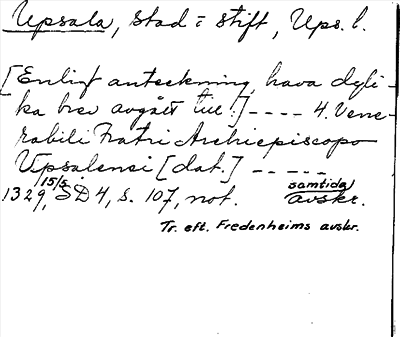 Upsala, stad = stift, Ups. l.
[Enligt anteckning, hava dyli-
ka brev avgått till:] ---- 4. Vene-
rabili Fratri Archiepiscopo
Upsalensi [dat.] -----
1329, 15/5 SD 4, s. 107, not. samtida avskr.
Tr. eft. Fredenheims avskr.